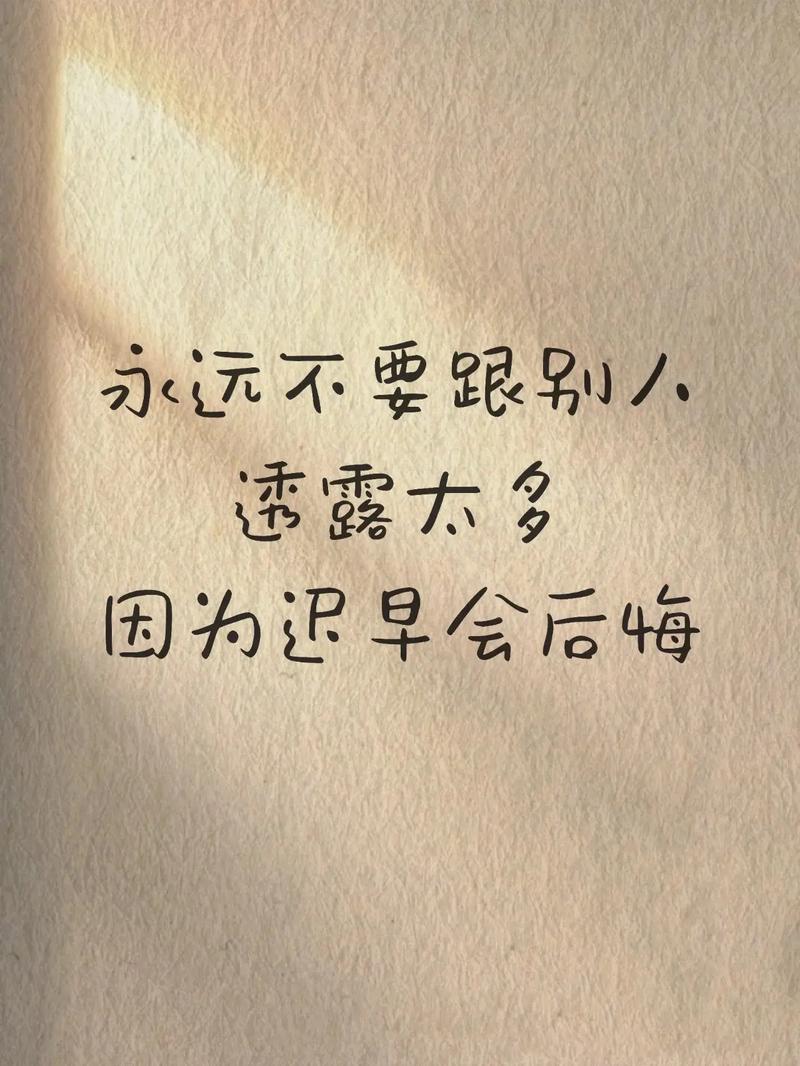 永远不要跟别人
透露太多
因为迟早会后悔